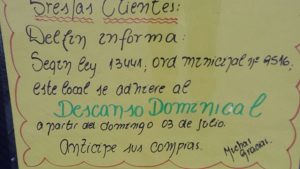 Sres/as Clientes:
Delfin informa:
Según ley 13441, ord municipal nº 9516,
este local se adhiere al
Descanso Dominical
a partir del domingo 03 de julio.
Anticipe sus compras.
Muchas
Gracias.